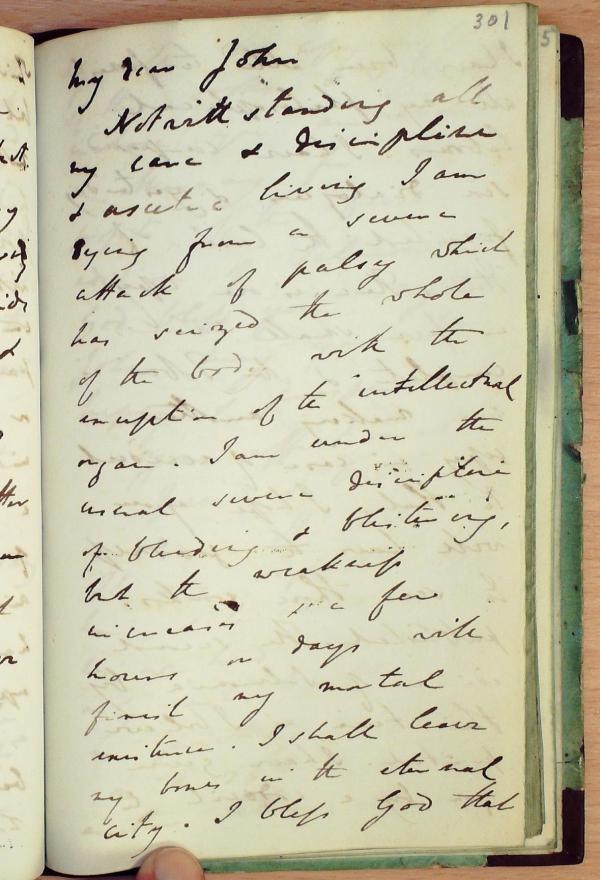 301
5
My dear John
Notwithstanding all
my care & discipline
& ascetic living I am
dying from a severe
attack of palsy which
has seized the whole
of the body with the
exception of the intellectual
organ. I am under the
usual severe discipline
of bleeding & blistering,
but the weakness
increases & a few
hours or days will
finish my mortal
existence. I shall leave
my bones in the eternal
city. I bless God that